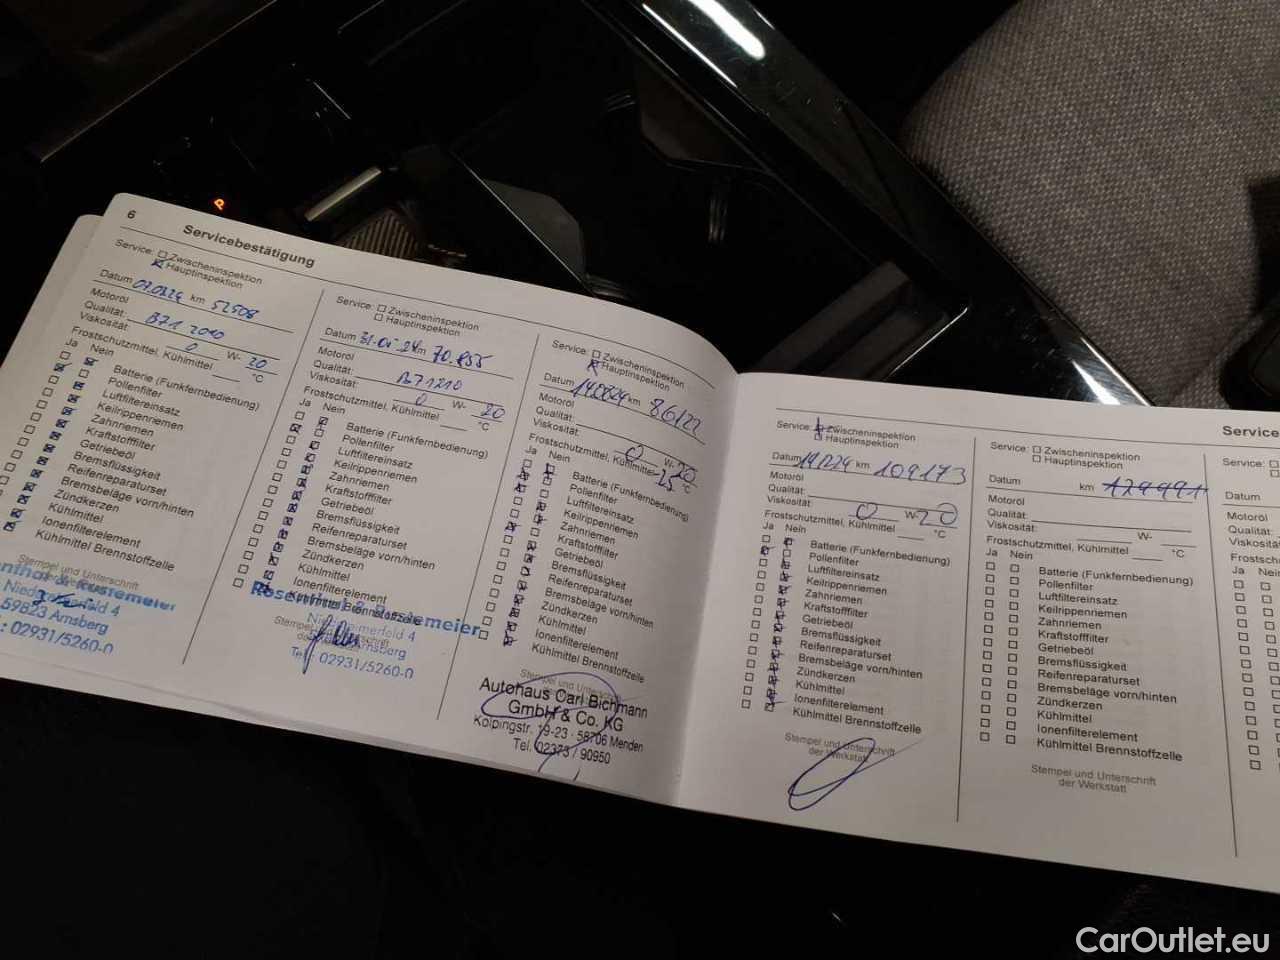 6
Servicebestätigung
Service: Zwischeninspektion
Hauptinspektion
Datum km 52508
Motoröl
Qualität: B71 2010
Viskosität: 0 W- 20
Frostschutzmittel, Kühlmittel °C
Ja Nein
Batterie (Funkfernbedienung)
Pollenfilter
Luftfiltereinsatz
Keilrippenriemen
Zahnriemen
Kraftstofffilter
Getriebeöl
Bremsflüssigkeit
Reifenreparaturset
Bremsbeläge vorn/hinten
Zündkerzen
Kühlmittel
Ionenfilterelement
Kühlmittel Brennstoffzelle
Stempel und Unterschrift
enthal & Rustemeier
4
59823 Arnsberg
: 02931/5260-0
Service: Zwischeninspektion
Hauptinspektion
Datum 31.01.24 km 70.855
Motoröl
Qualität:
Viskosität: 0 W- 20
Frostschutzmittel, Kühlmittel °C
Ja Nein
Batterie (Funkfernbedienung)
Pollenfilter
Luftfiltereinsatz
Keilrippenriemen
Zahnriemen
Kraftstofffilter
Getriebeöl
Bremsflüssigkeit
Reifenreparaturset
Bremsbeläge vorn/hinten
Zündkerzen
Kühlmittel
Ionenfilterelement
Kühlmittel Brennstoffzelle
Rosenthal & Rustemeier
4
Arnsberg
Tel.: 02931/5260-0
Service: Zwischeninspektion
Hauptinspektion
Datum 140624 km 86122
Motoröl
Qualität:
Viskosität: 0 W- 20
Frostschutzmittel, Kühlmittel -25 °C
Ja Nein
Batterie (Funkfernbedienung)
Pollenfilter
Luftfiltereinsatz
Keilrippenriemen
Zahnriemen
Kraftstofffilter
Getriebeöl
Bremsflüssigkeit
Reifenreparaturset
Bremsbeläge vorn/hinten
Zündkerzen
Kühlmittel
Ionenfilterelement
Kühlmittel Brennstoffzelle
Stempel und Unterschrift
Autohaus Carl Bichmann
GmbH & Co. KG
Kolpingstr. 19-23 · 58706 Menden
Tel. 02373 / 90950
Service: Zwischeninspektion
Hauptinspektion
Datum 191224 km 109173
Motoröl
Qualität:
Viskosität: 0 W- 20
Frostschutzmittel, Kühlmittel °C
Ja Nein
Batterie (Funkfernbedienung)
Pollenfilter
Luftfiltereinsatz
Keilrippenriemen
Zahnriemen
Kraftstofffilter
Getriebeöl
Bremsflüssigkeit
Reifenreparaturset
Bremsbeläge vorn/hinten
Zündkerzen
Kühlmittel
Ionenfilterelement
Kühlmittel Brennstoffzelle
Stempel und Unterschrift
der Werkstatt
Service: Zwischeninspektion
Hauptinspektion
Datum km
Motoröl
Qualität:
Viskosität: W-
Frostschutzmittel, Kühlmittel °C
Ja Nein
Batterie (Funkfernbedienung)
Pollenfilter
Luftfiltereinsatz
Keilrippenriemen
Zahnriemen
Kraftstofffilter
Getriebeöl
Bremsflüssigkeit
Reifenreparaturset
Bremsbeläge vorn/hinten
Zündkerzen
Kühlmittel
Ionenfilterelement
Kühlmittel Brennstoffzelle
Stempel und Unterschrift
der Werkstatt
Service
Service:
Datum
Motoröl
Qualität:
Viskosität
Frostsch
Ja Nein
P
CarOutlet.eu